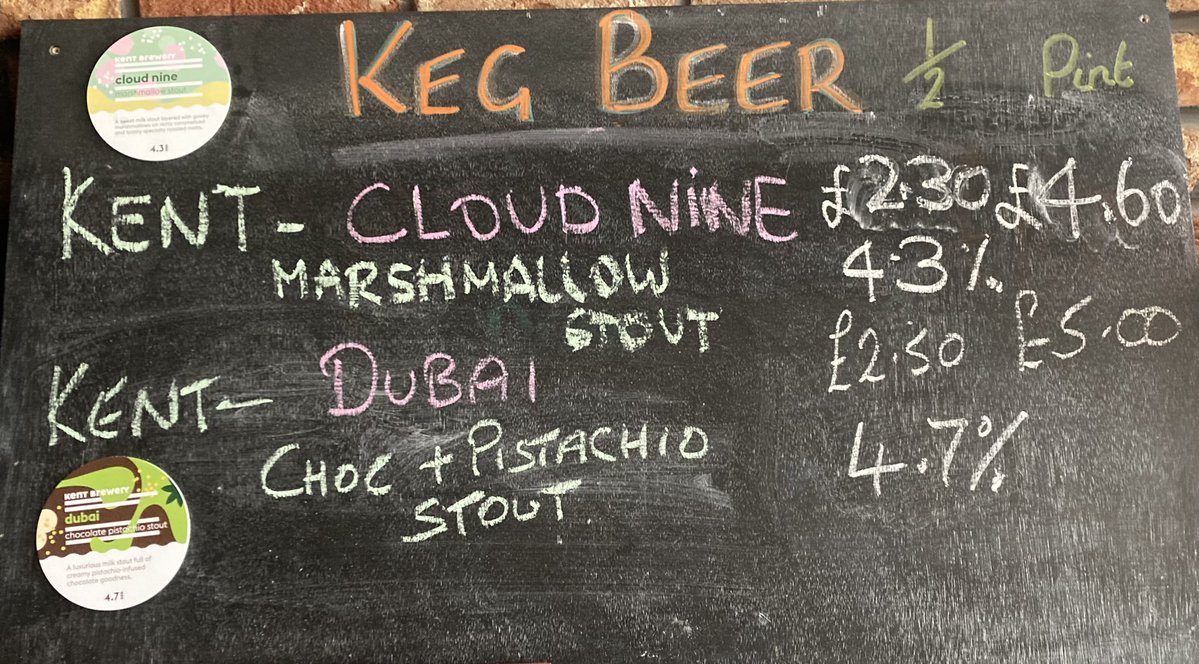 KEG BEER 1/2 Pint
KENT BREWERY
cloud nine
marshmallow stout
A sweet milk stout layered with gooey
marshmallows on richly caramelised
and toasty speciality roasted malts.
4.3%
KENT - CLOUD NINE £2.30 £4.60
MARSHMALLOW 4.3%
STOUT
KENT - DUBAI £2.50 £5.00
CHOC + PISTACHIO 4.7%
STOUT
KENT BREWERY
dubai
chocolate pistachio stout
A luxurious milk stout full of
creamy pistachio-infused
chocolate goodness.
4.7%